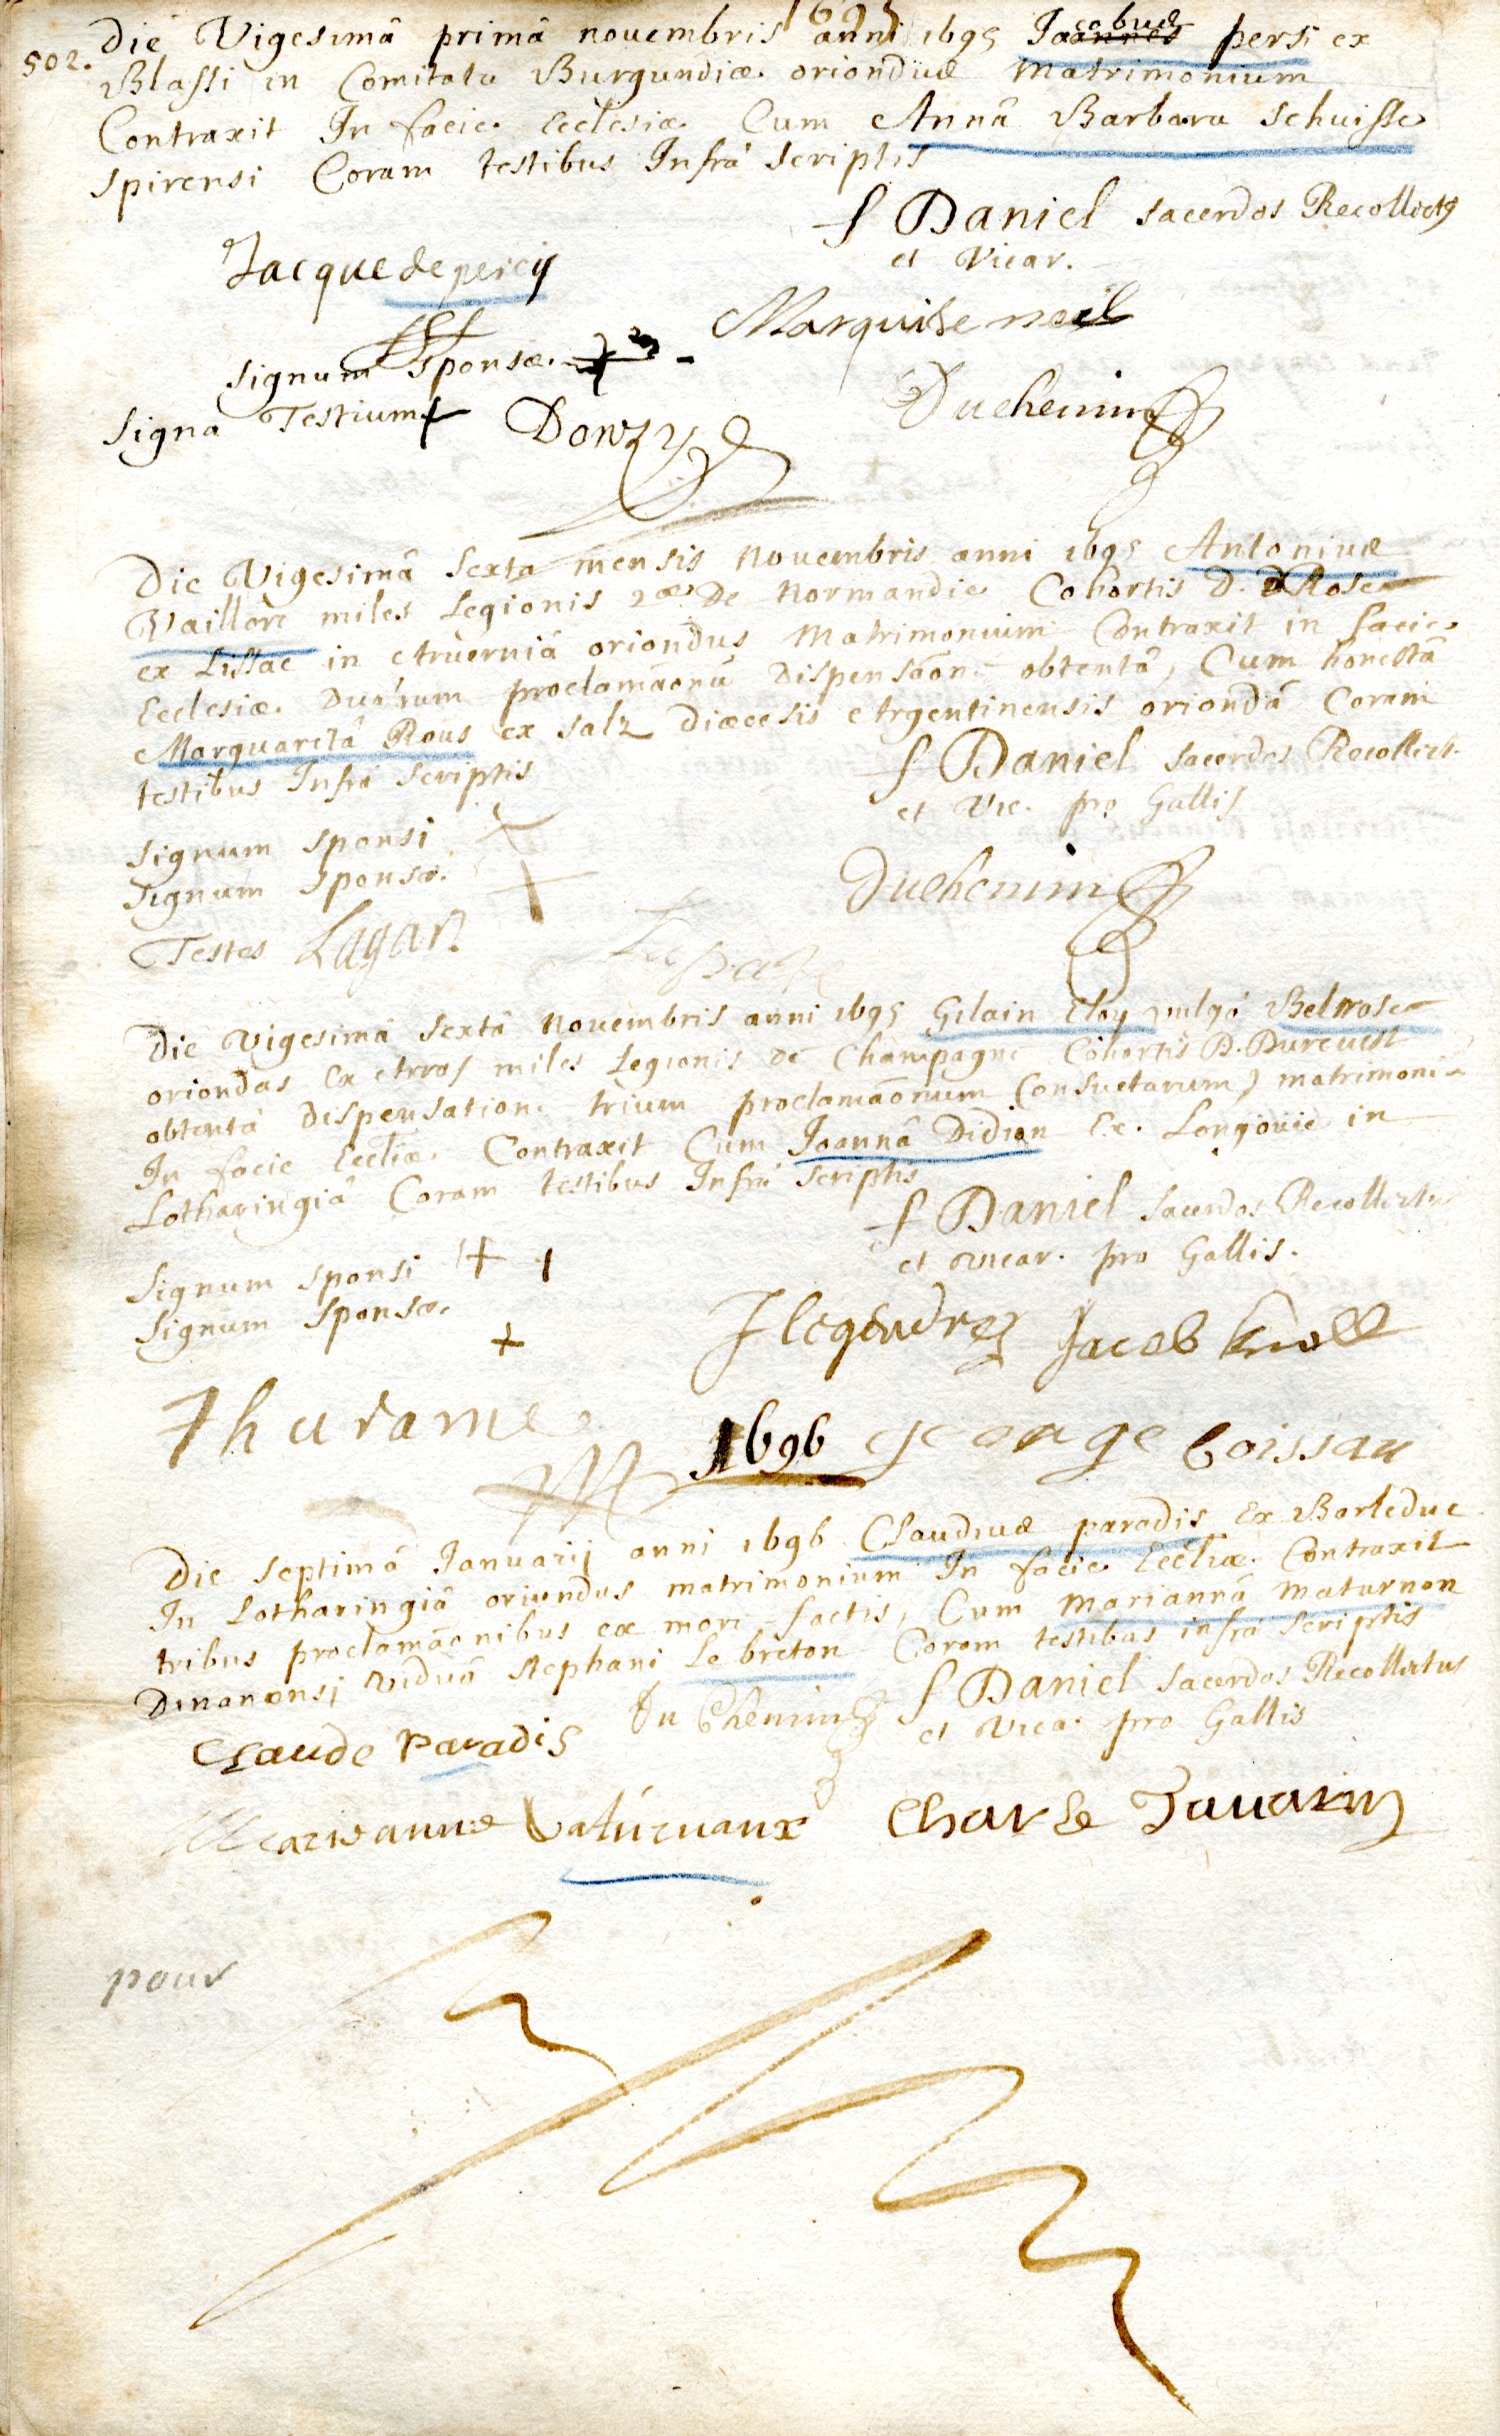 1695
502. Die Vigesimâ primâ nouembris anni 1695 Jacobus persi ex
Blassi in Comitatu Burgundiæ oriondus matrimonium
Contraxit In facie Ecclesiæ Cum Annâ Barbara Schuisse
Spirensi Coram testibus Infrà scriptis
f Daniel sacerdos Recollectus
et Vicar.
Jacque de percy
Marquise
Signum Sponsæ
Duchemin
Signa Testium + Donzy
Die Vigesimâ Sexta mensis Nouembris anni 1695 Antonius
Vaillon miles Legionis 2æ De Normandie Cohortis D. Rose
ex Lissac in Aruerniâ oriondus Matrimonium Contraxit in facie
Ecclesiæ Duarum proclamaõnũ Dispensaõne obtentâ, Cum honestâ
Marguaritâ Rous ex Salz Diæcesis Argentinensis oriondâ Coram
testibus Infrà scriptis
f Daniel sacerdos Recollect.
et Vic. pro Gallis
Signum Sponsi
Signum Sponsæ
Duchemin
Testes Lagan
Die Vigesimâ Sextâ Nouembris anni 1695 Gilain Eloy vulgò Belrose
oriondas Ex Arras miles Legionis de Champagne Cohortis D. Bureuest
obtentâ Dispensatione trium proclamaõnum Consuetarum) matrimoniu
In facie Eccliæ Contraxit Cum Joannâ Didion Ex Longouie in
Lotharingiâ Coram testibus Infrà scriptis
f Daniel Sacerdos Recollectus
et vicar. pro Gallis.
Signum Sponsi + +
Signum Sponsæ
+
J legendre Jacob Knoll
Thurame
1696 george boissar
Die Septimâ Januarij anni 1696 Claudius paradis Ex Barleduc
In Lotharingiâ oriundus matrimonium In facie Eccliæ Contraxit
tribus proclamaõnibus ex more factis, Cum Mariannâ Maturnon
Dinanensi viduâ Stephani Le breton Coram testibus infrà scriptis
Du Chemin f Daniel Sacerdos Recollectus
et Vica. pro Gallis
Claude Paradis
Marieanne Vaturnaux Charle Tauarin
pour